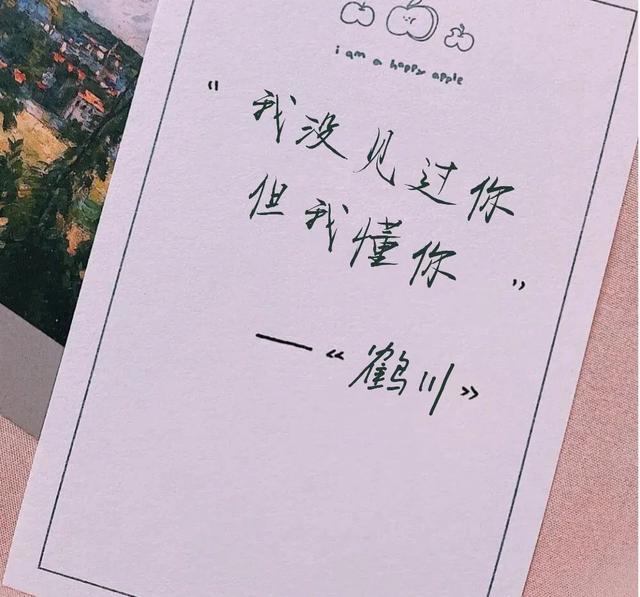 i am a happy apple
“我没见过你
但我懂你”
—《鹤川》